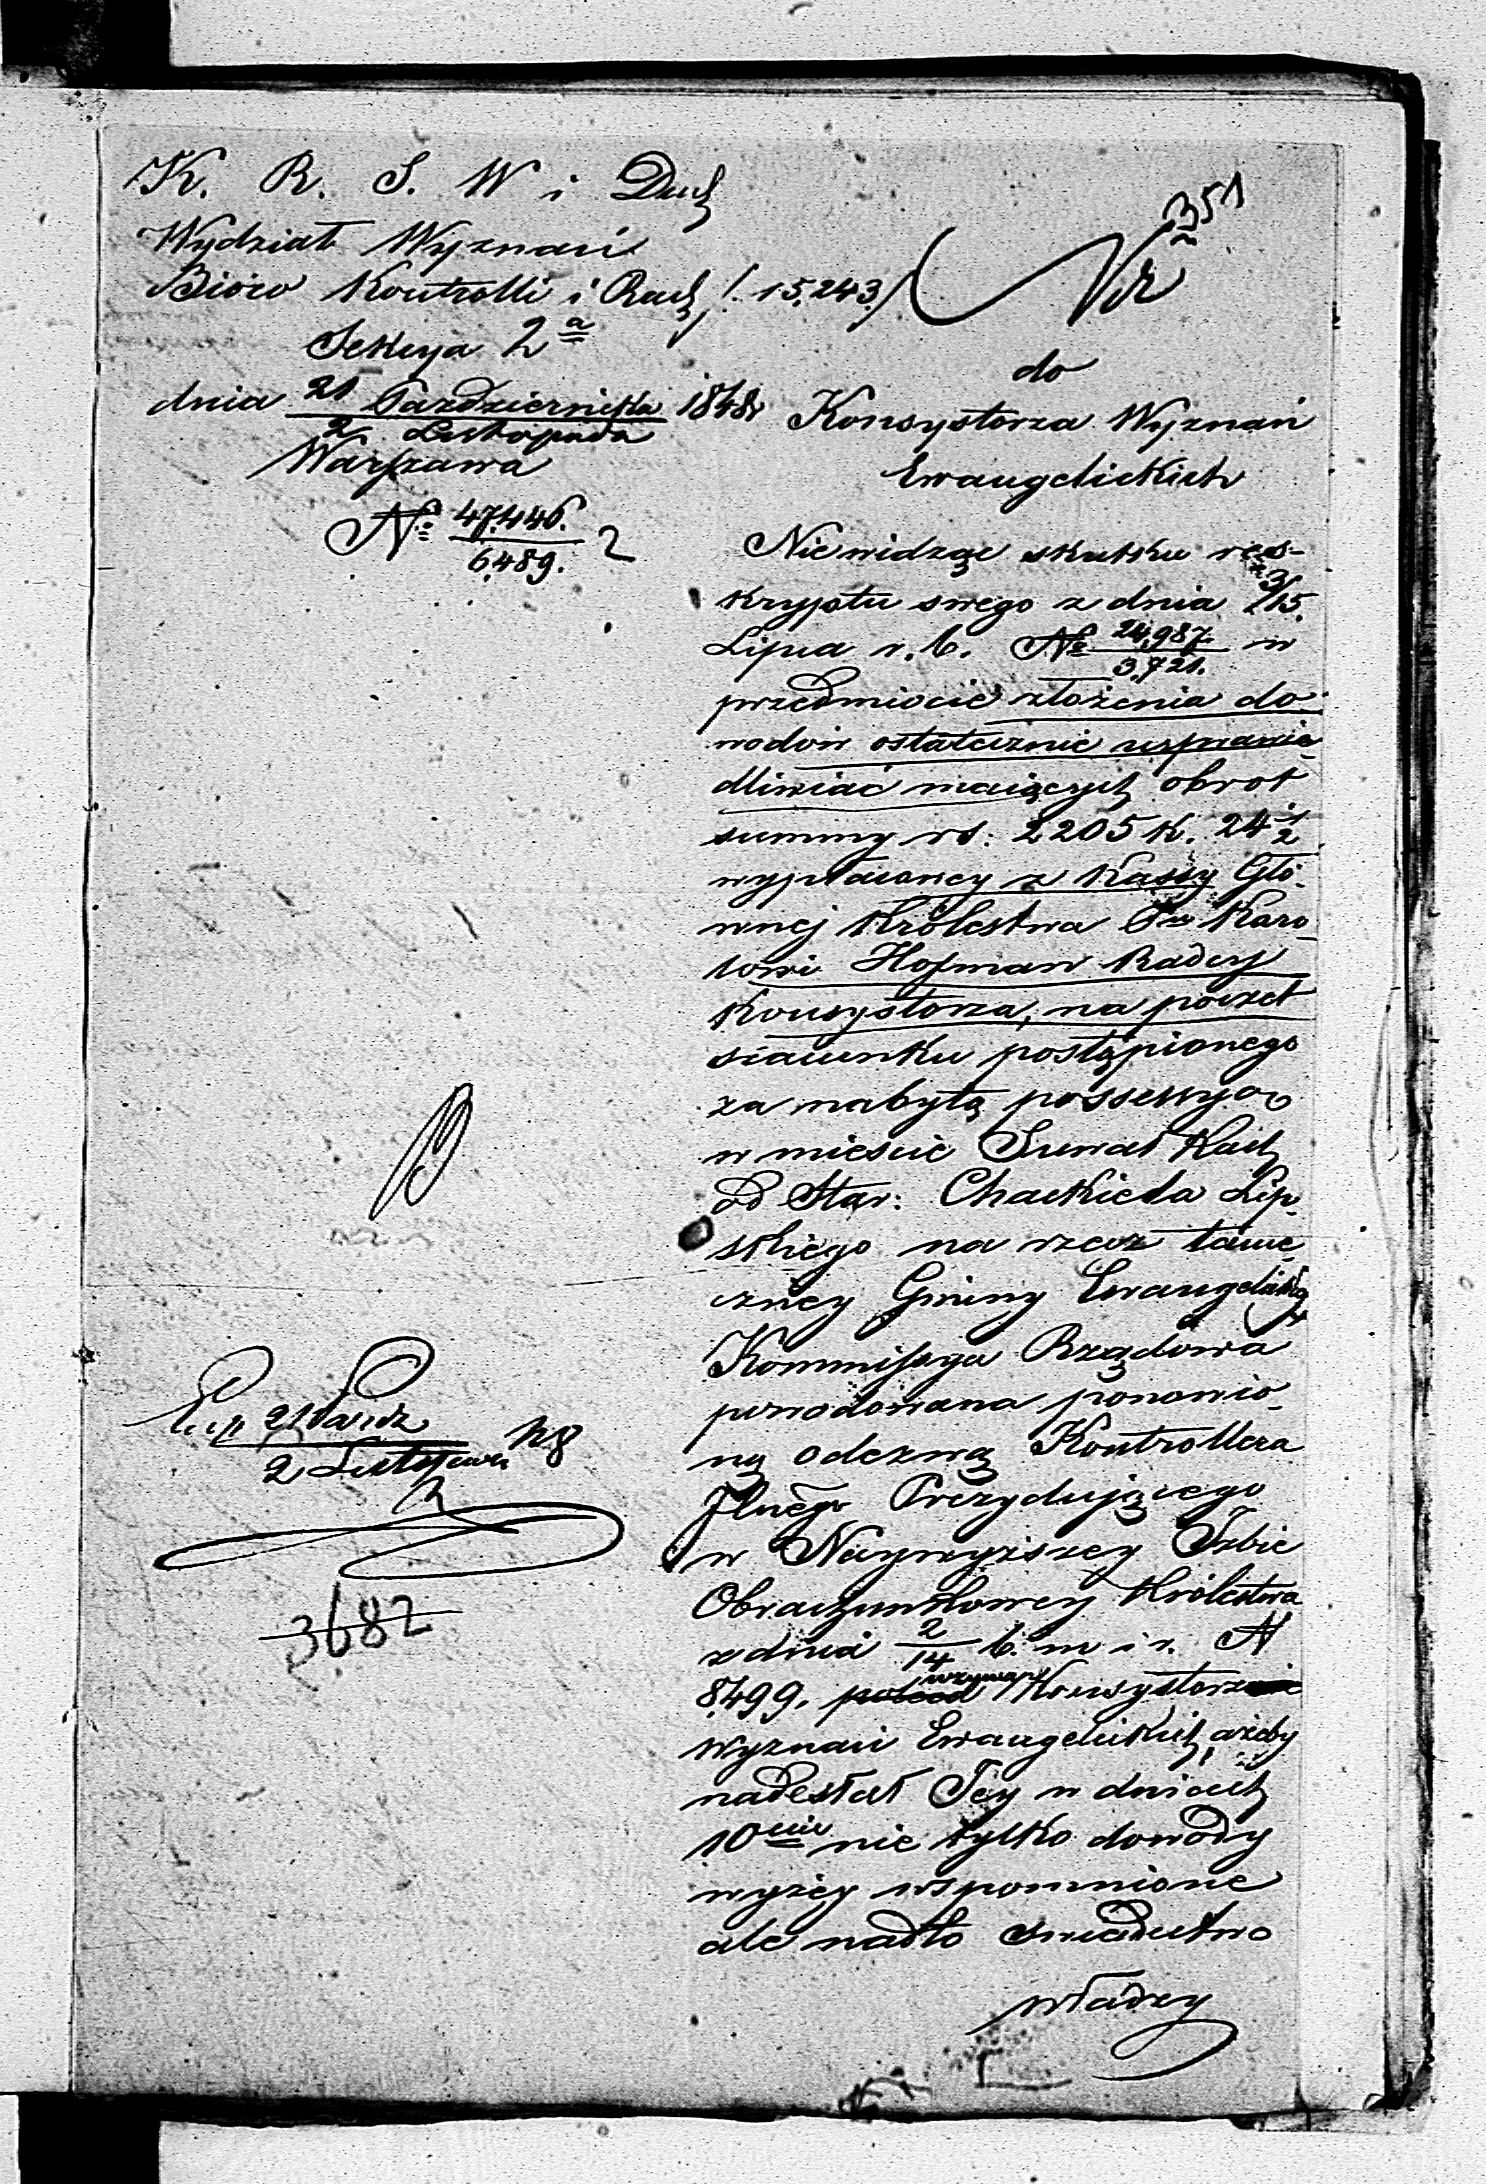 K. R. S. W i Duch
Wydział Wyznań
Bióro Kontrolli i Rach /. 15,243 ./
Sekcya 2a
dnia 21 Października / 2 Listopada 1848r
Warszawa
No 47446. / 6489. 2
351
do
Konsystorza Wyznań
Ewangelickich
Nie widząc skutku res-
kryptu swego z dnia 3/15
Lipca r. b. No 24,987. / 3,721. w
przedmiocie złożenia do-
wodów ostatecznie usprawie-
dliwiać maiących obrot
summy rs: 2205 k. 24 1/2
wypłaconey z Kassy Głó-
wnej Królestwa Pu Karo-
lowi Hofman Radcy
Konsystorza, na poczet
szacunku postąpionego
za nabytą possessyą
w mieście Suwałkach
od Star: Chackiela Lip-
skiego na rzecz tame-
czney Gminy Ewangelickiey
Kommissya Rządowa
powodowana ponowio-
ną odezwą Kontrollera
Jlnego Prezydującego
w Naywyższey Izbie
Obrachunkowey Królestwa
z dnia 2/14 b. m i r. N
8,499, poleca wzywa Konsystorz
Wyznań Ewangelickich ażeby
nadesłał Jey w dniach
10ciu nie tylko dowody
wyżey wspomnione
ale nadto swiadectwo
władzy
Exp 21 Paźdz / 2 Listopada
3682